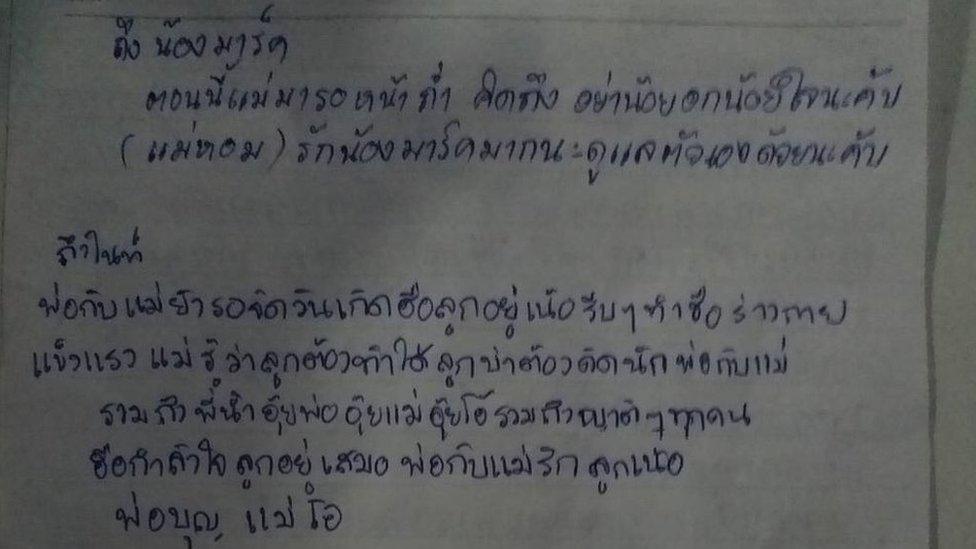 ถึง น้องมาร์ค
ตอนนี้แม่มารอหน้าถ้ำ คิดถึง อย่าน้อยอกน้อยใจนะคับ
(แม่หอม) รักน้องมาร์คมากนะดูแลตัวเองด้วยนะคับ
ถึงไนท์
พ่อกับแม่ยังรอจัดวันเกิดฮือลูกอยู่เน้อ รีบๆทำฮือร่างกาย
แข็งแรง แม่รู้ว่าลูกต้องทำได้ ลูกบ่าต้องคิดนัก พ่อกับแม่
รวมถึงพี่น้ำ อุ๊ยพ่อ อุ๊ยแม่ อุ๊ยโอ้ รวมถึงญาติๆทุกคน
ฮือกำลังใจ ลูกอยู่เสมอ พ่อกับแม่รัก ลูกเน้อ
พ่อบุญ แม่โอ